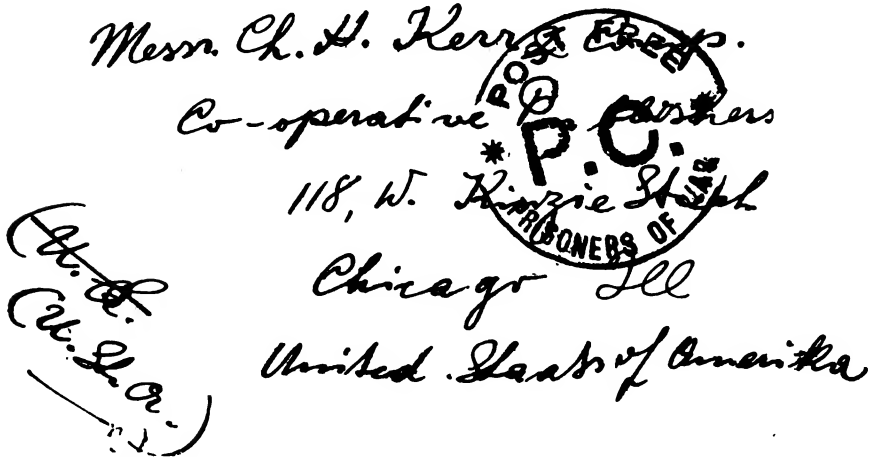 Messr. Ch. H. Kerr & Comp.
Co-operative Publishers
118, W. Kinzie
Chicago Ill
United Staats of Amerika
POST FREE
P.C.
PRISONERS OF WAR
(U. S.
(U. St. A.